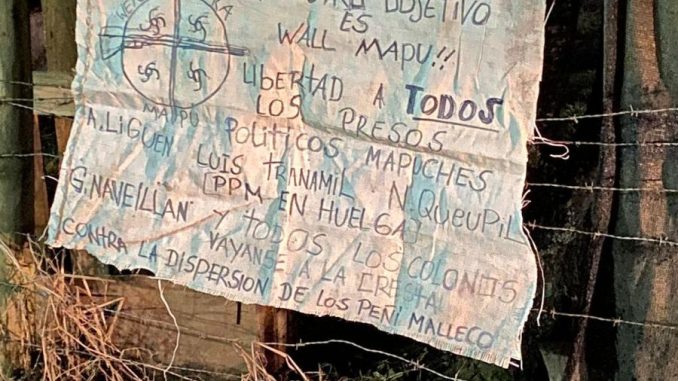 OBJETIVO
ES
WALL MAPU!!
LIBERTAD A TODOS
LOS PRESOS
POLITICOS MAPUCHES
MALPU
A. LIGUEN LUIS TRANAMIL N. QUEUPIL
[PPM EN HUELGA]
G. NAVEILLAN Y TODOS LOS COLONOS
VAYANSE A LA CRESTA!
CONTRA LA DISPERSION DE LOS PEÑI MALLECO